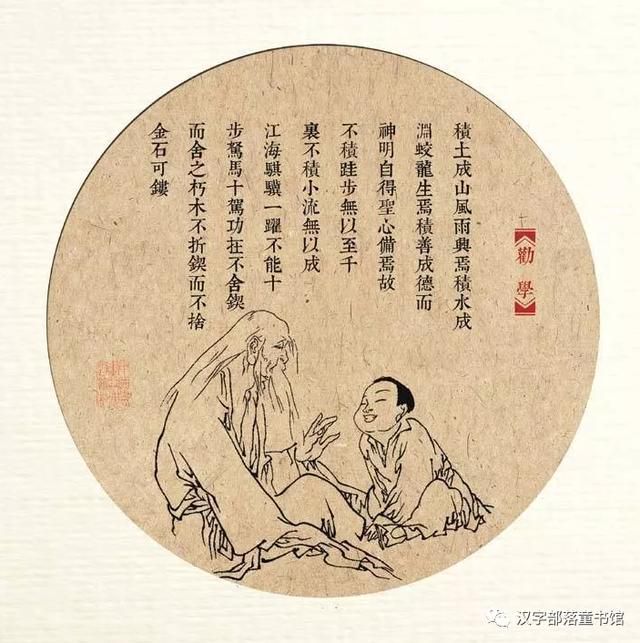 勸學
積土成山風雨興焉積水成
淵蛟龍生焉積善成德而
神明自得聖心備焉故
不積跬步無以至千
裏不積小流無以成
江海騏驥一躍不能十
步駑馬十駕功在不舍鍥
而舍之朽木不折鍥而不捨
金石可鏤
汉字部落童书馆